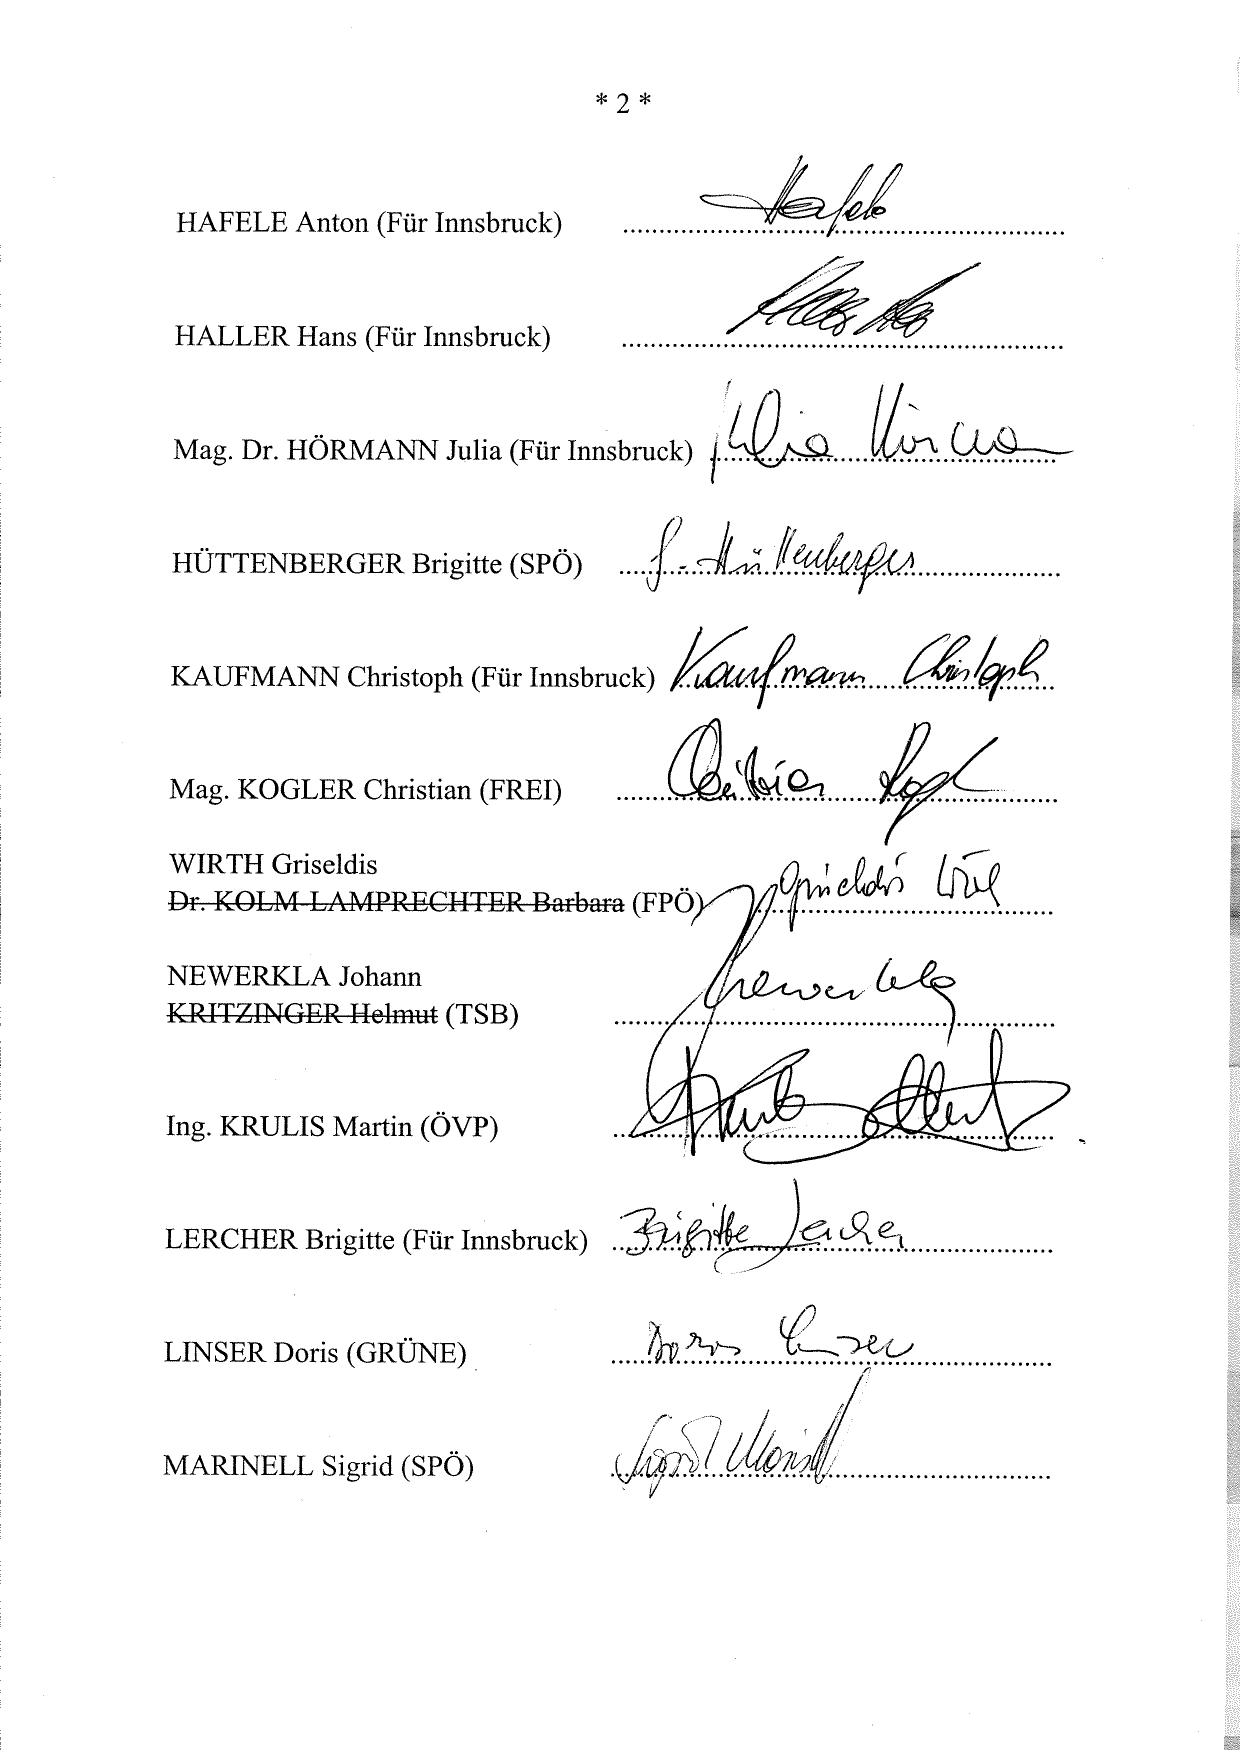 * 2 *
HAFELE Anton (Für Innsbruck) Hafele
HALLER Hans (Für Innsbruck)
Mag. Dr. HÖRMANN Julia (Für Innsbruck) Julia
HÜTTENBERGER Brigitte (SPÖ) Hüttenberger
KAUFMANN Christoph (Für Innsbruck) Kaufmann Christoph
Mag. KOGLER Christian (FREI) Christian
WIRTH Griseldis
Dr. KOLM-LAMPRECHTER Barbara (FPÖ) Griseldis
NEWERKLA Johann Newerkla
KRITZINGER Helmut (TSB)
Ing. KRULIS Martin (ÖVP)
LERCHER Brigitte (Für Innsbruck) Brigitte Lercher
LINSER Doris (GRÜNE) Doris Linser
MARINELL Sigrid (SPÖ) Sigrid Marinell